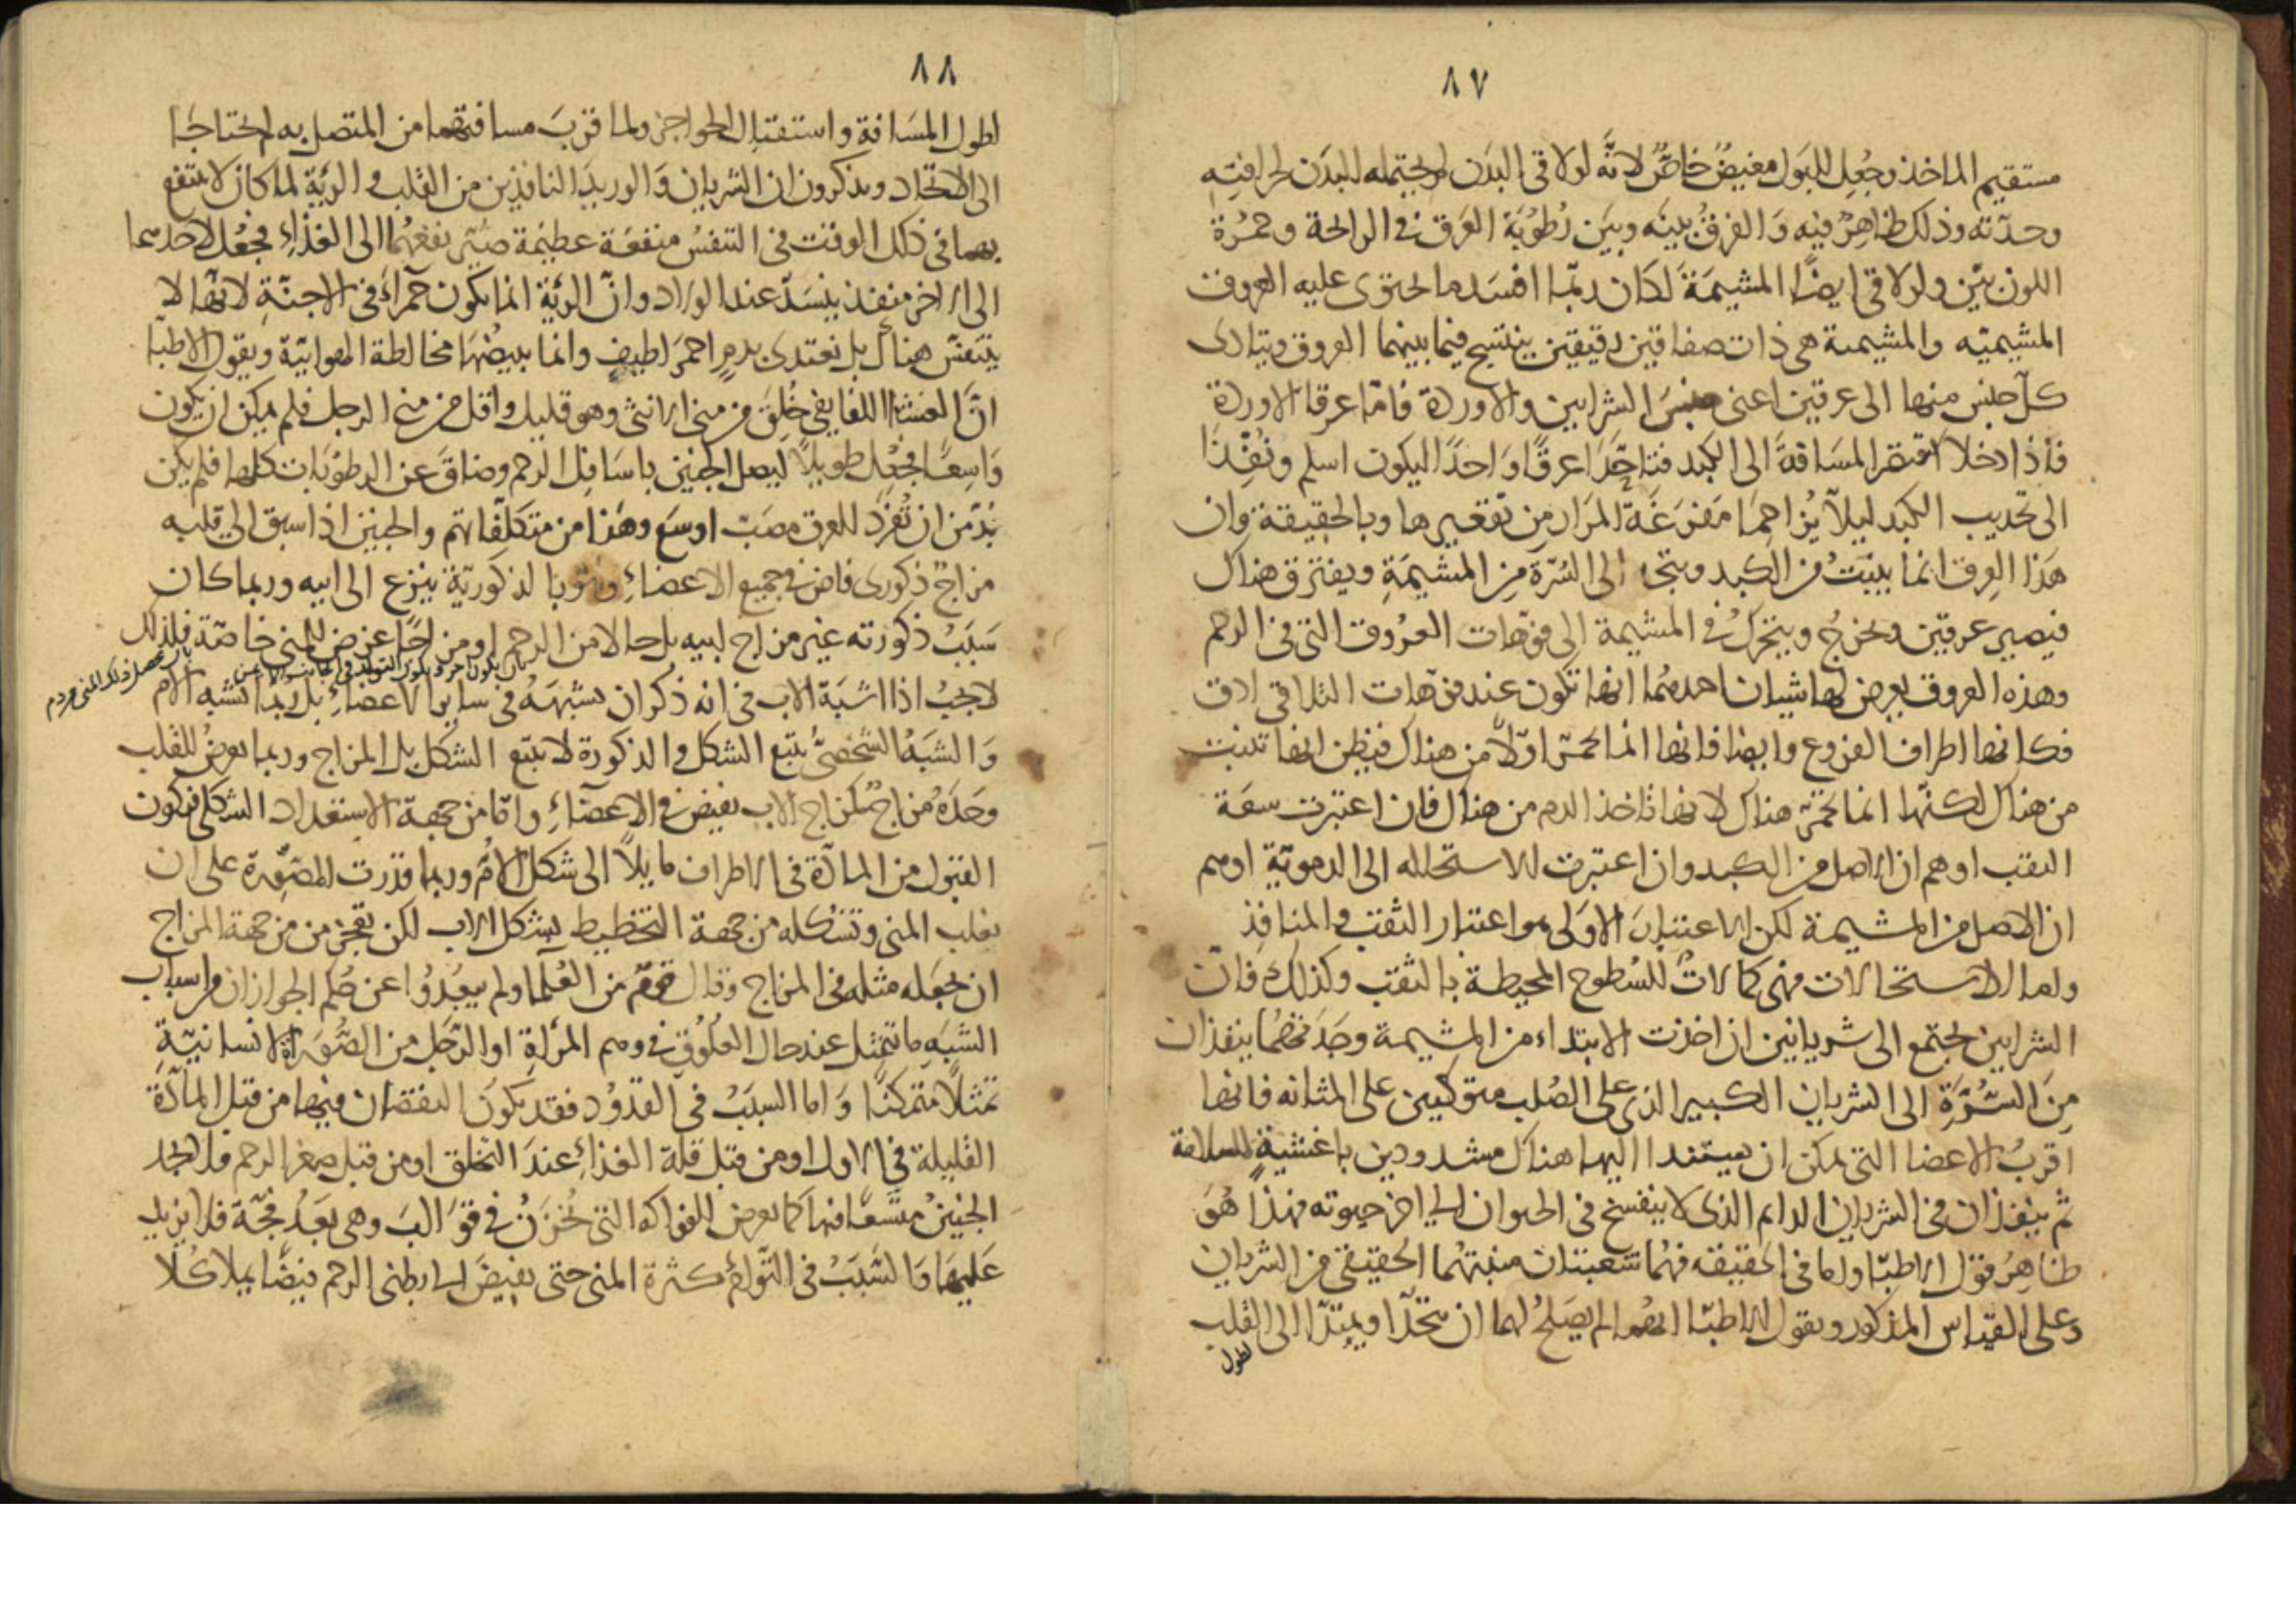 ٨٧
مستقيم الماخذ وجُعِل للبَول مغيضٌ خاصٌّ لانَّه لو لاقى البدَن لم يحتمله البدَن لحرافته
وحدّته وذلك ظاهِرٌ فيه وَالفرقُ بينَه وبيَن رُطوُبَة العَرَق في الرائحة وحمُرة
اللون بيّن ولو لاقى ايضًا المشيمَةَ لكَان ربّما افسَد ما يحتوى عليه العروق
المشيميّه والمشيمة هى ذات صفاقين رقيقين ينتسج فيما بينهما العروق ويتادى
كلّ جنس منها الى عرقين اعنى جنسَ الشرايين والاوردة فامّا عرقا الاوردة
فاذا دخلا اقتصر المسَافةَ الى الكبد فاتّحَدَا عرقًا وَاحدًا ليكون اسلم ونُفّذَا
الى تحديب الكبد ليلاّ يُزاحِمَا مَفرَغَةَ المَرار من تقعيرها وبالحقيقة فان
هَذا العِرق انما ينبتُ من الكبد وينحدر الى السُرّة مِن المشيمَةِ ويفترق هناك
فيصير عرقين ويخرجُ ويتحرّكُ في المشيمة الى فوّهات العرُوق التى فى الرحم
وهذه العروق يعرض لها شيئان احدهُما انها تكون عند فوّهات التلاقى ادق
فكانها اطراف الفروع وايضا فانها انما تحمرّ اوّلاً من هناك فيظن انها تنبت
من هناك لكنّها انما تحمرّ هناك لانها تاخذ الدم من هناك فان اعتبرت سعَة
الثقب اوهم ان الاصل من الكبد وان اعتبرت الاستحالة الى الدموية اوهم
ان الاصل من المشيمة لكن الاعتبارَ الاوَلى هو اعتبار الثقب والمنافِذِ
واما الاستحالات فهى كمالاتٌ للسُطوح المحيطة بالثقب وكذلك فانّ
الشرايين تجتمع الى شريانين ان اخذت الابتداء من المشيمة وجَدَتهُما ينفذان
مِنَ السُّرَّةِ الى الشريان الكبير الذى على الصُلب متوكئين على المثانه فانها
اقربُ الاعضا التى يمكن ان يستندا اليها هناك مشدودين باغشيةٍ للسلامة
ثم ينفذان فى الشريان الدايم الذى لا ينفسخ فى الحيوان الى اخر حيوته فهذا هُوَ
ظاهِرُ قول الاطبّا واما فى الحقيقه فهُما شعبتان منبتهُما الحقيقى من الشريان
وعلى القياس المذكور ويقول الاطبّا انهما لم يصَلحُ لهما ان يتحّدا ويمتدّا الى القلب
لطول
٨٨
لطول المسَافةِ واستقبال الحواجز ولما قربَ مسافتهما من المتصل به لم يحتاجَا
الى الاتحاد ويذكرون ان الشريان وَالوريدَ النافذين من القلب والرئة لما كان لا ينتفع
بهما فى ذلك الوقت فى التنفسُ منفعَة عظيمة صُيّر نفعهُما الى الغذاءِ فجُعُل لاحدهما
الى الاخر منفذ ينسَدّ عند الولاد وانّ الرئة انما تكون حمَراءَ فى الاجنّةِ لانها لا
يتنفّس هناك بل تغتدى بدمٍ احمرَ لطيفٍ وانما يبيضُها مخالطة الهوائيّة ويقول الاطبّا
انّ الغشا اللفايفى خُلِقَ من منى الانثى وهو قليل واقل من منى الرجل فلم يمكن ان يكون
وَاسِعًا فجُعِل طويلاً ليصل الجنين باسَافِل الرحم وضاقَ عن الرطوَبات كلها فلم يكن
بُدّ من ان تُفرَد للعرق مصَبّ اوسَع وهَذا من متكلّفاتهم والجنين اذا سبق الى قلبه
مزاجٌ ذكورى فاض في جميع الاعضاءِ وهو بالذكوريّة ينزع الى ابيه وربما كان
سَبَبُ ذكورته غير مزاج ابيه بل حال من الرحم او من حَال عرض للمنى خاصّة فلذلك
لا يجبُ اذا اشبَهَ الاب فى انه ذكر ان يشبهَهُ فى ساير الاعضاءِ بل ربما يشبه الام
وَالشبَهُ الشخصىُّ يتبع الشكل والذكورة لا يتبع الشكل بل المزاج وربما يعرضُ للقلب
وحَدَهُ مزاجٌ كمزاج الاب يفيض في الاعضاءِ وامّا من جهة الاستعداد الشكلى فيكون
القبول من المادّة فى الاطراف مايلاً الى شكل الامّ وربما قدرت المصَوِّرة على ان
تغلب المنى وتشكله من جهة التخطيط بشكل الاب لكن تعجز من من جهة المزاج
ان تجعَله مثله فى المزاج وقال قومٌ من العُلما ولم يبعُدوُا عن حُكم الجواز ان من اسباب
الشبَهِ ما يتمثل عند حال العُلوُق في وهم المرَاةِ او الرّجَل من الصُّوَر الانسانيّةِ
تمثلاً متمكنًا وَاما السبَبُ في القدوُد فقد يكوُن النقصَان فيها من قبل المادّة
القليلة فى الاول او من قبل قلة الغذاءِ عندَ التخلق او من قبل صغر الرحم فلا يجد
الجنينُ متّسَعًا فيها كما يعرض للفواكه التى تُخزَنُ في قوَالبَ وهى بَعَدُ فجّة فلا يزيد
عَليهَا وَالسَّبَبُ فى التوام كثرة المنى حتى يفيضَ الى بطنى الرحم فيضًا يملا كُلا